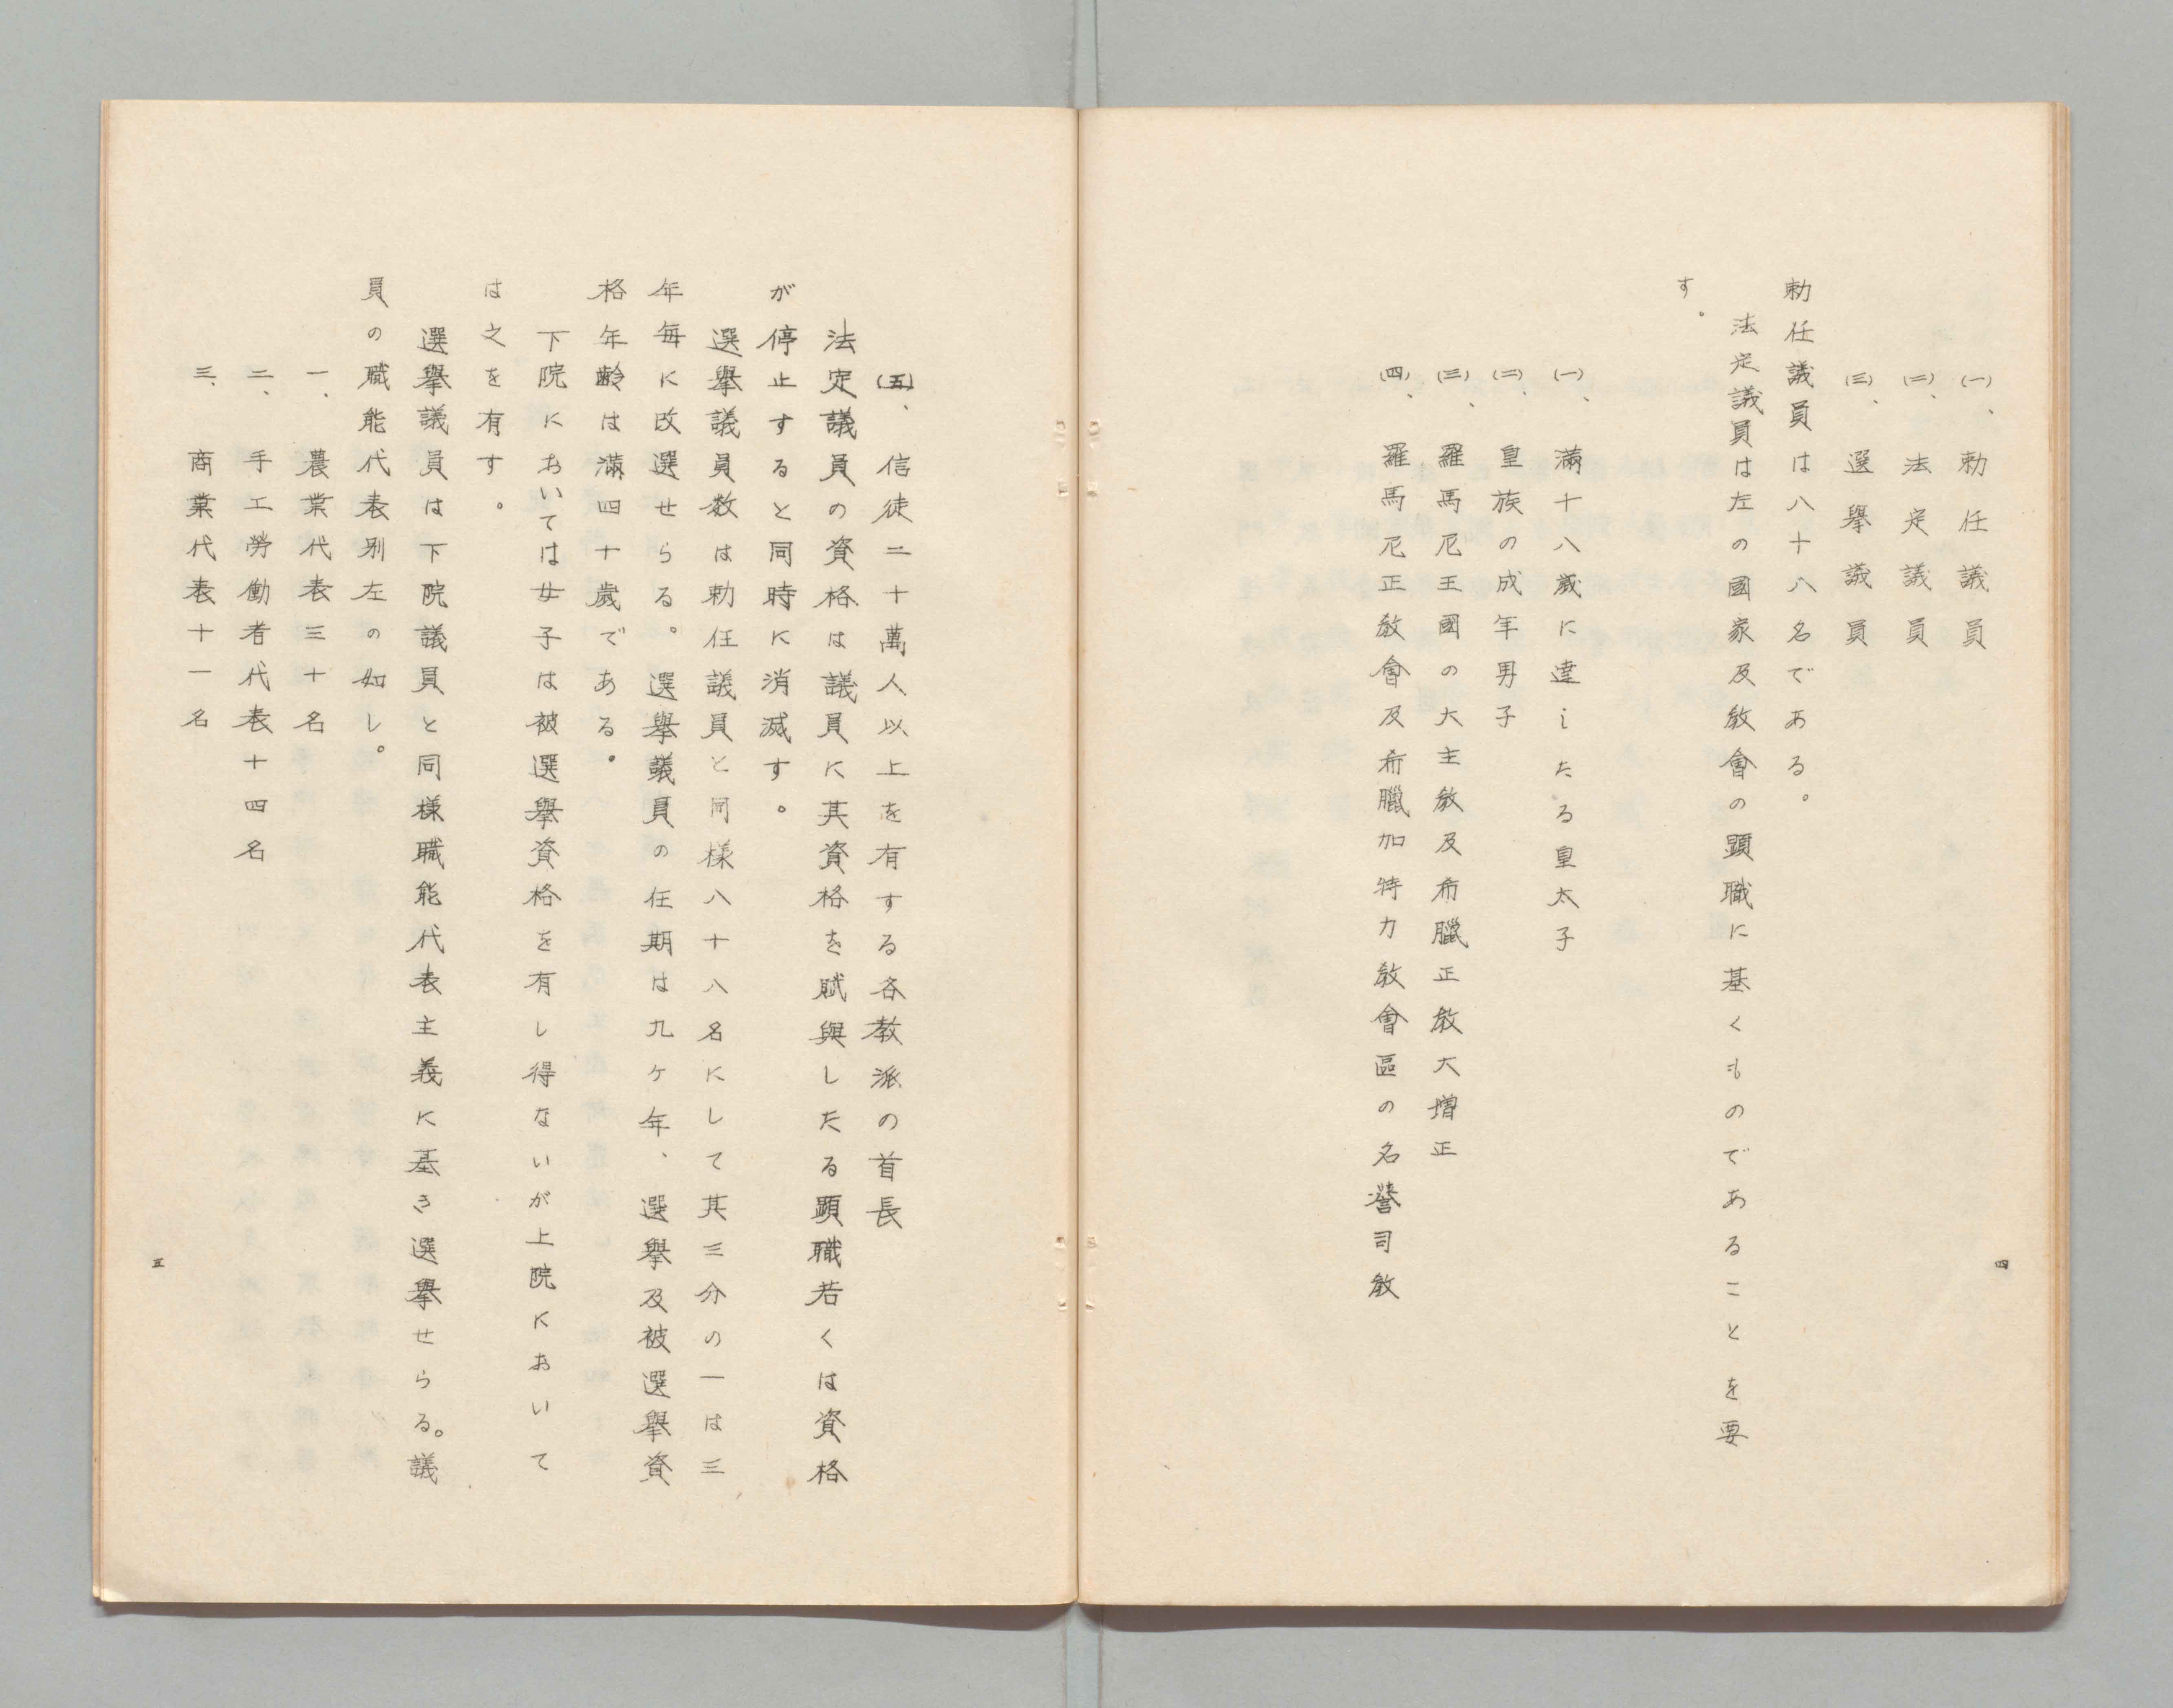 (一)、勅任議員
(二)、法定議員
(三)、選擧議員
勅任議員は八十八名である。
法定議員は左の國家及教會の顕職に基くものであることを要
す。
(一)、滿十八歳に達したる皇太子
(二)、皇族の成年男子
(三)、羅馬尼王國の大主教及希臘正教大増正
(四)、羅馬尼正教會及希臘加特力教會區の名譽司教
四
(五)、信徒二十萬人以上を有する各教派の首長
法定議員の資格は議員に其資格を賦與したる顕職若くは資格
が停止すると同時に消滅す。
選擧議員数は勅任議員と同様八十八名にして其三分の一は三
年毎に改選せらる。選擧議員の任期は九ケ年、選擧及被選擧資
格年齢は滿四十歳である。
下院においては女子は被選擧資格を有し得ないが上院において
は之を有す。
選擧議員は下院議員と同様職能代表主義に基き選擧せらる。議
員の職能代表別左の如し。
一、農業代表三十名
二、手工勞働者代表十四名
三、商業代表十一名
五